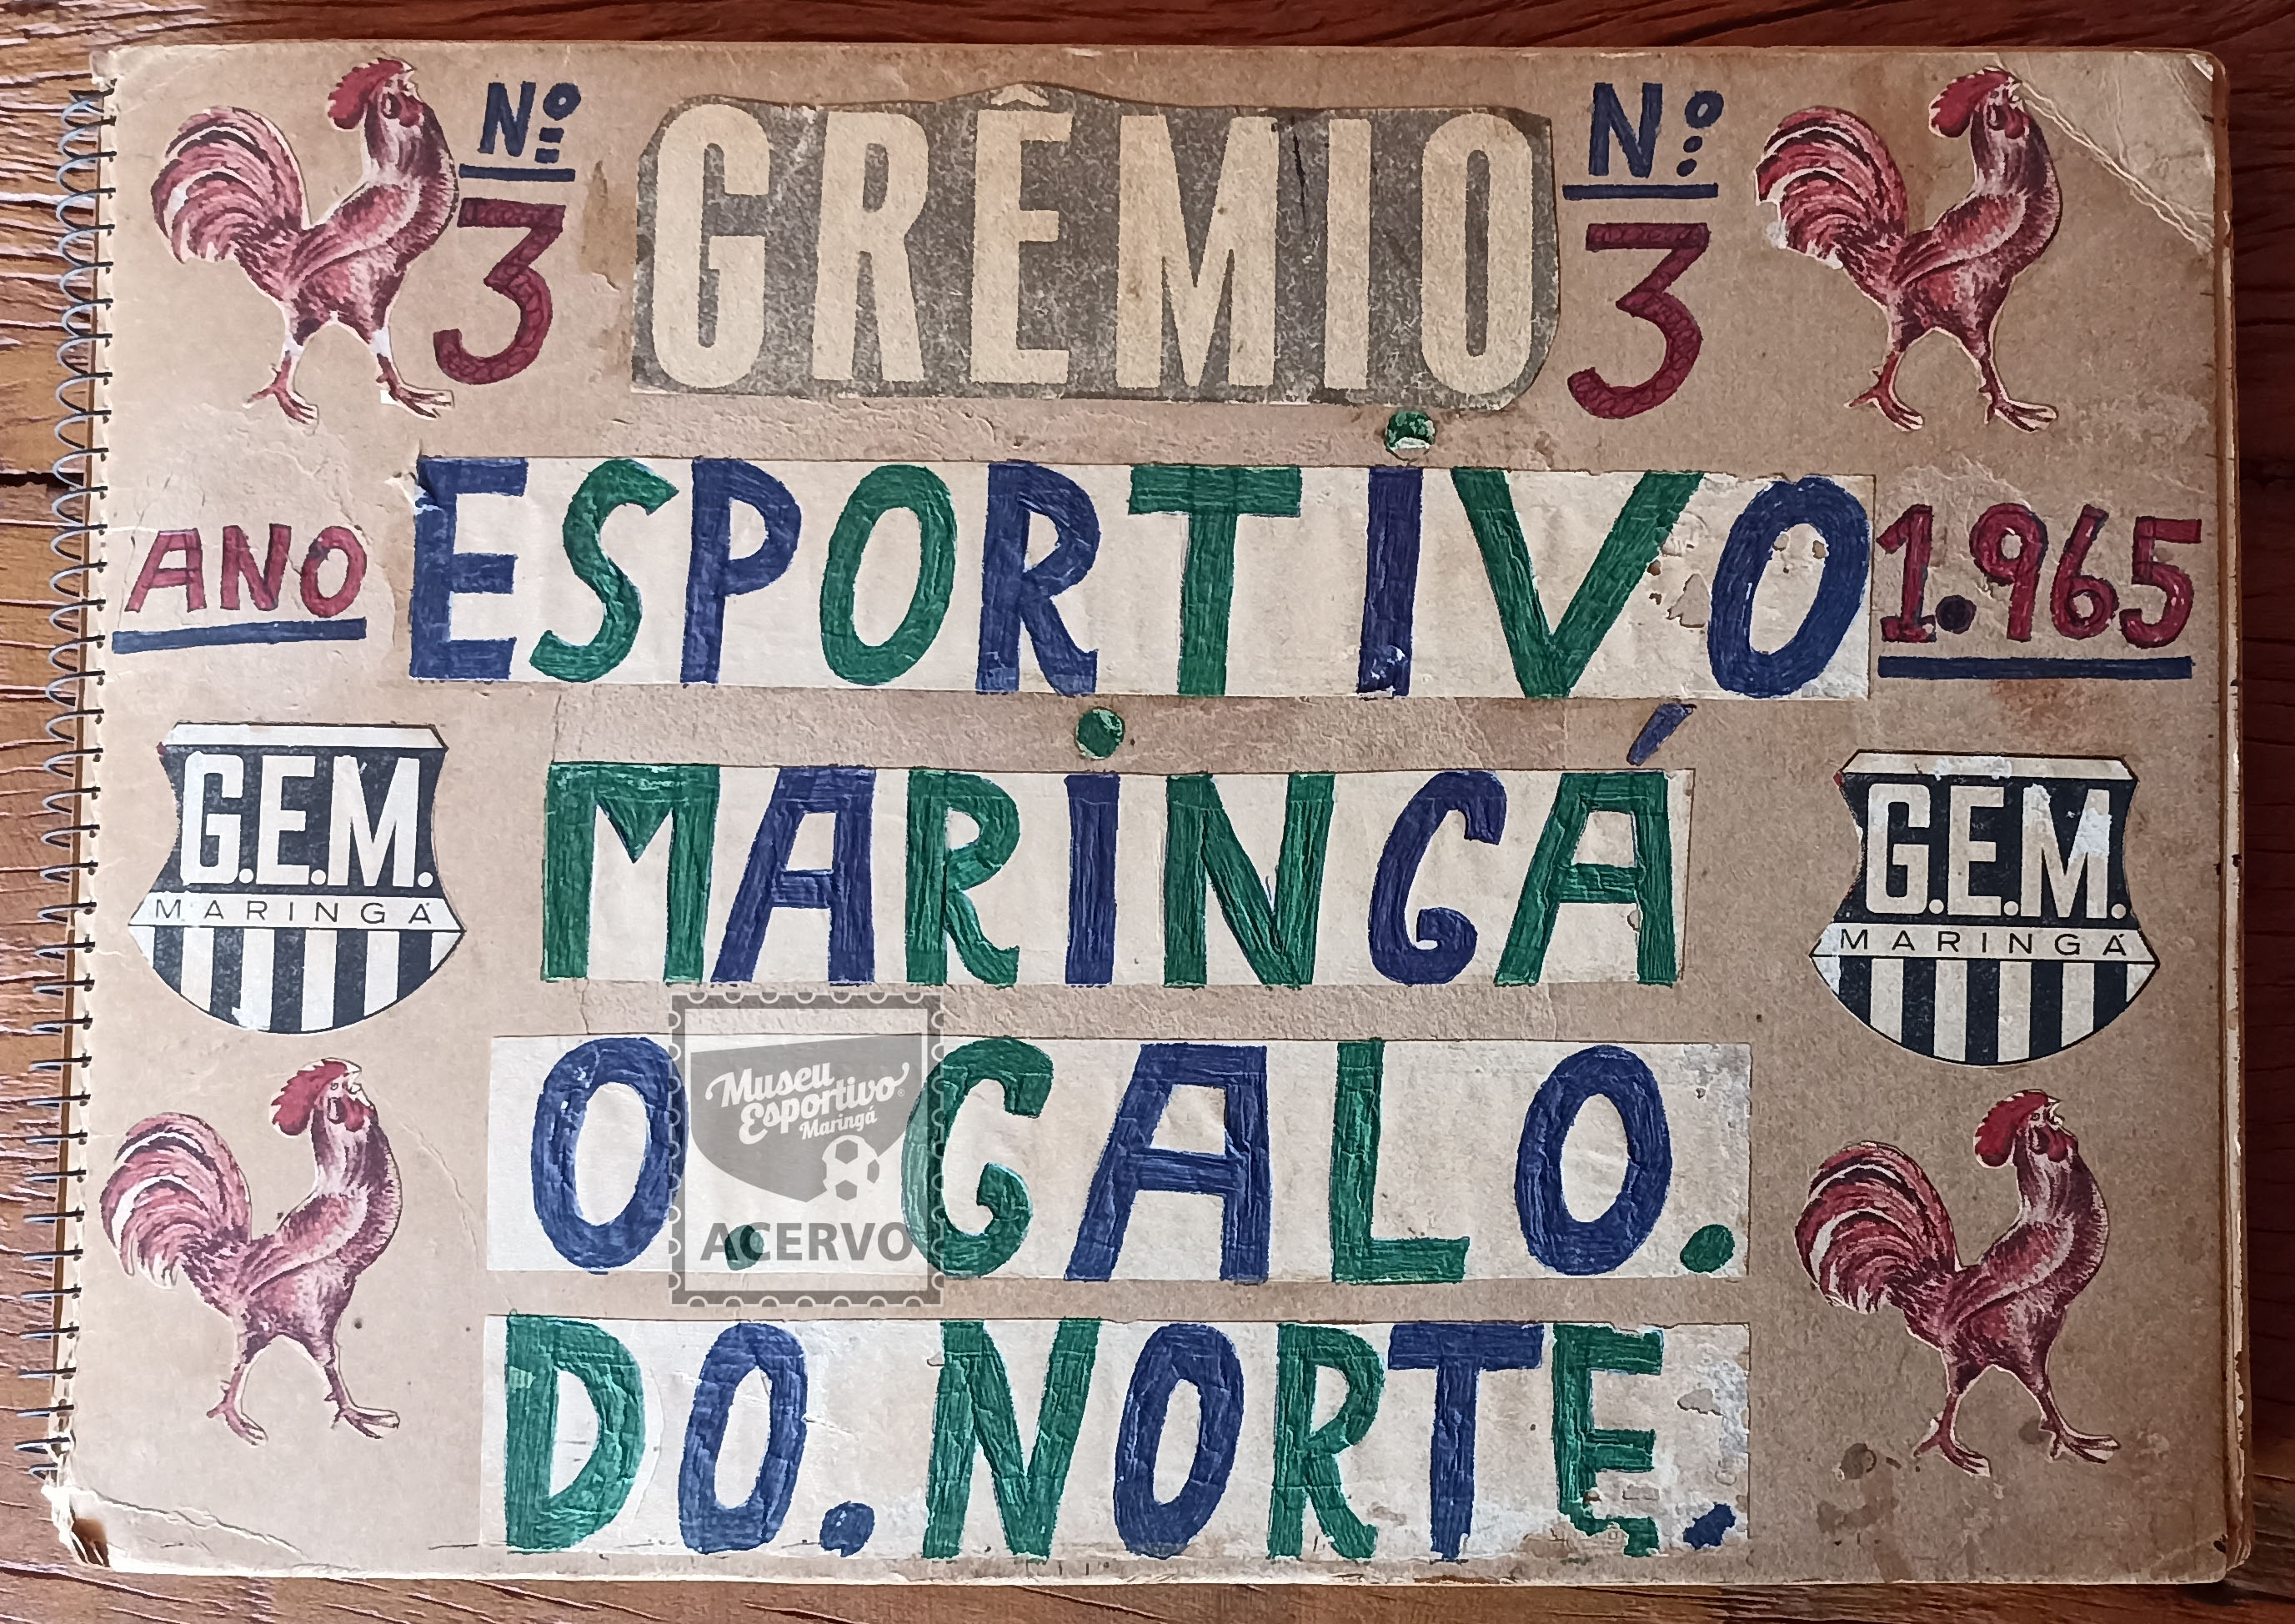 Nº Nº
3 GRÊMIO 3
ANO ESPORTIVO 1.965
G.E.M. MARINGÁ G.E.M.
MARINGÁ MARINGÁ
O. GALO.
Museu
Esportivo
Maringá
ACERVO
DO. NORTE.